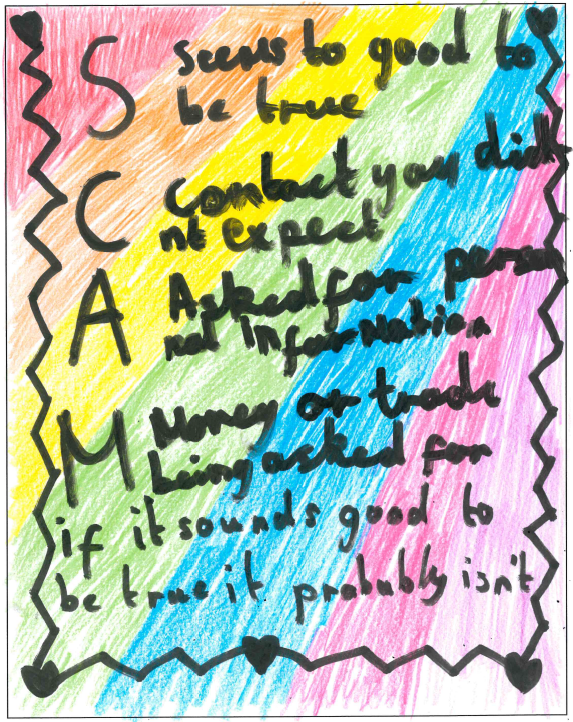 S Seems to good to
be true
C Contact you did
nt expect
A Asked for perso
nal information
M Money or trade
being asked for
if it sounds good to
be true it probably isn't